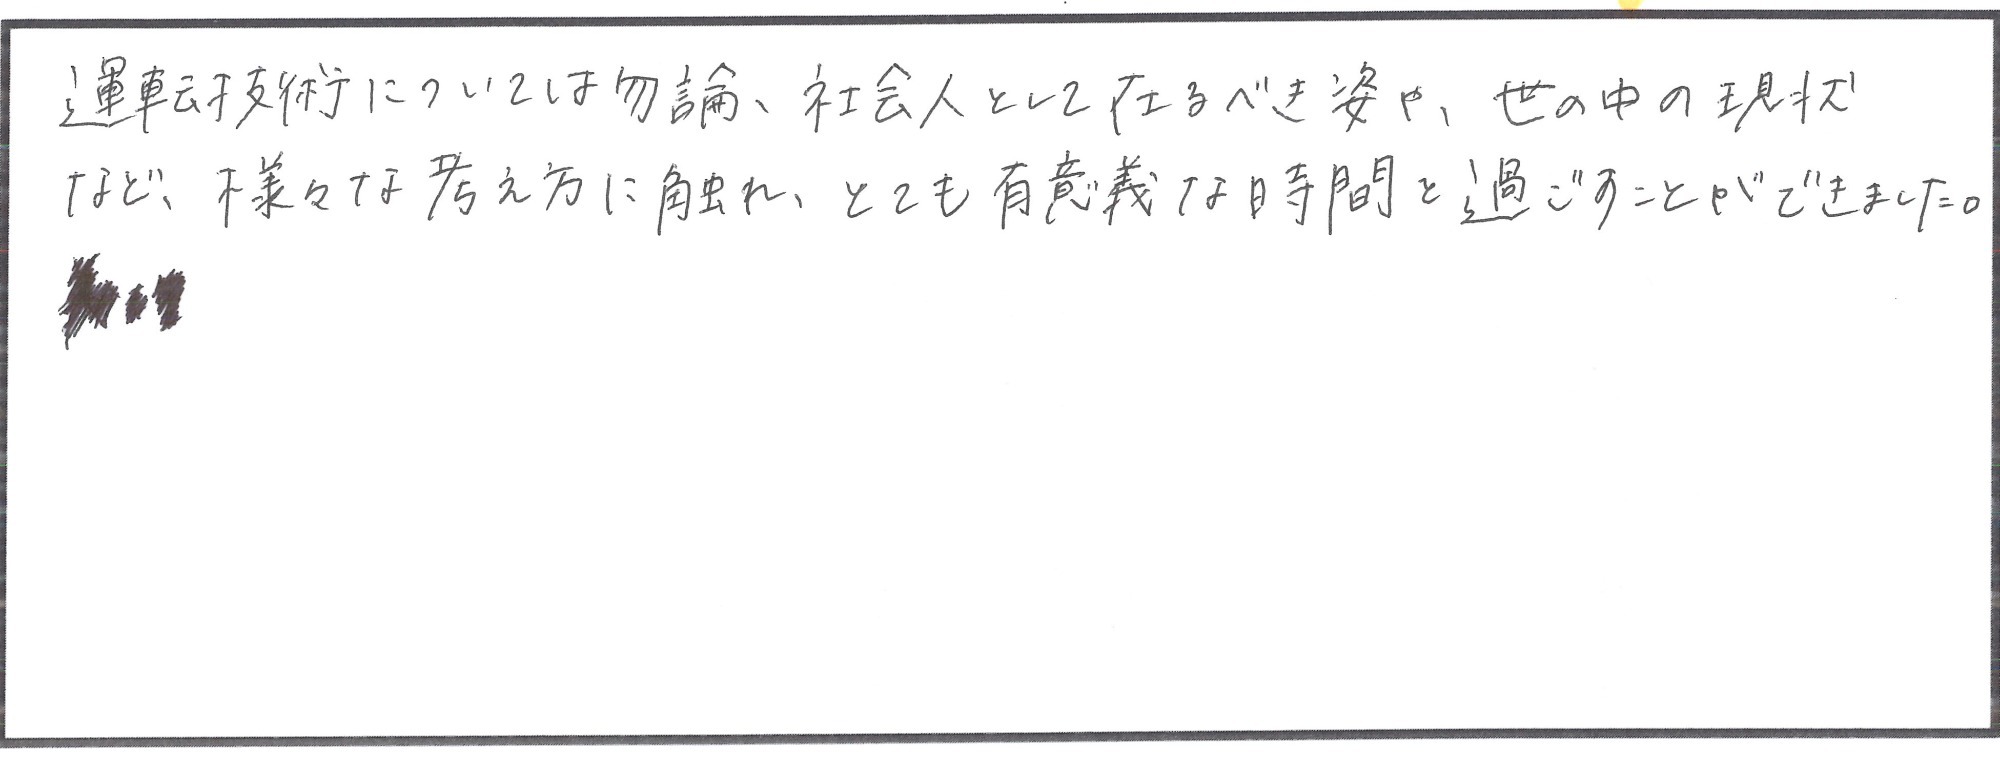 運転技術については勿論、社会人として在るべき姿や、世の中の現状
など、様々な考え方に触れ、とても有意義な時間と過ごすことができました。